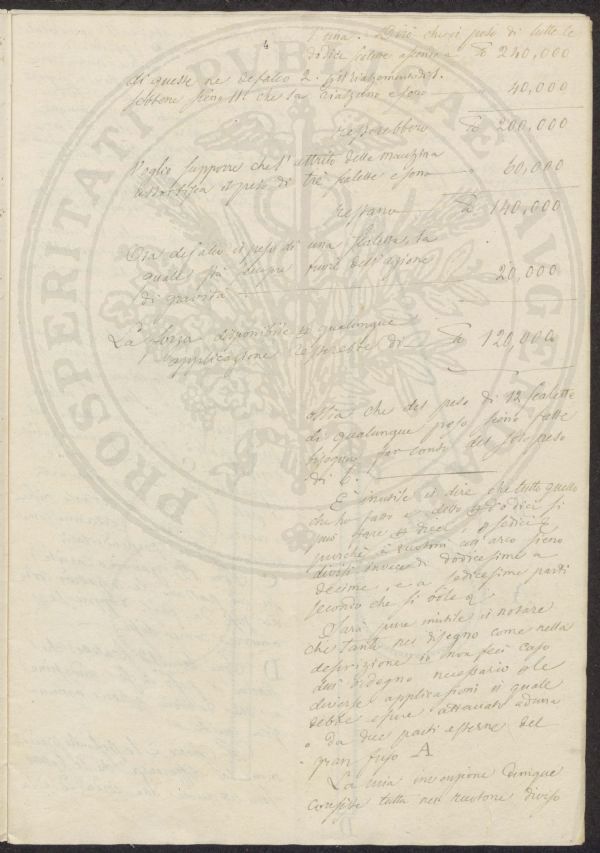 4
l'una. Dirò che il peso di tutte le
dodici scalette ascenda a ₶ 240,000
di queste ne defalco 2.
sebbene che la siano 40,000
resterebbero ₶ 200,000
Voglio supporre che l'attrito della macchina
assorbisca il peso di tre scalette e sono 60,000
restano ₶ 140,000
Ora defalco il peso di una scaletta, la
quale sta sempre fuori dell'azione
di gravità 20,000
La forza disponibile qualunque
applicazione resterebbe di ₶ 120,000
ossia che del peso di 12 scalette
di qualunque peso sieno fatte
bisogna far conto del solo peso
di 6.
È inutile il dire che tutto quello
che ho fatto e detto dodici si
può fare dieci, o sedici
purchè i ruotoni coll'arco sieno
divisi invece di dodicesime a
decime, e a sedicesime parti
secondo che si vole
Sarà pure inutile il notare
che tanto nel disegno come nella
descrizione io non feci caso
del bisogno necessario le
diverse applicazioni il quale
debbe essere attaccato ad una
o da due parti esterne del
gran fuso A
La mia invenzione dunque
consiste tutta nel ruotone diviso
PROSPERITATI PUBLICAE AUGE